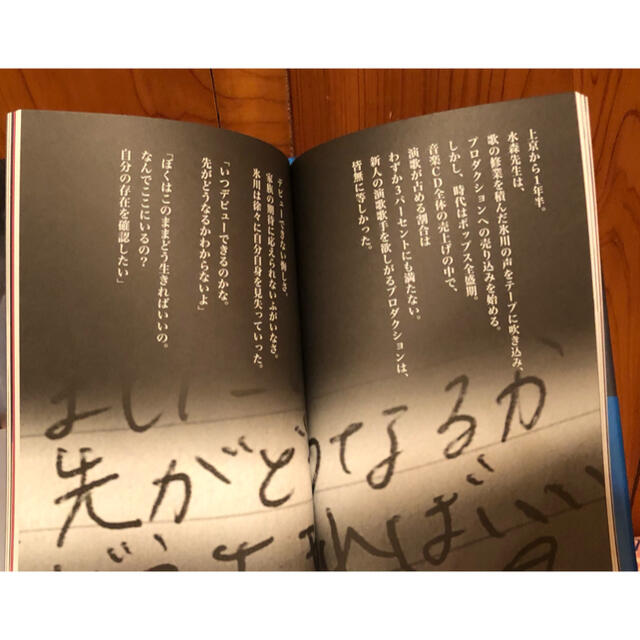 上京から1年半。
水森先生は、
歌の修業を積んだ氷川の声をテープに吹き込み、
プロダクションへの売り込みを始める。
しかし、時代はポップス全盛期。
音楽CD全体の売上げの中で、
演歌が占める割合は
わずか3パーセントにも満たない。
新人の演歌歌手を欲しがるプロダクションは、
皆無に等しかった。
デビューできない悔しさ、
家族の期待に応えられないふがいなさ。
氷川は徐々に自分自身を見失っていった。
「いつデビューできるのかな。
先がどうなるかわからないよ」
「ぼくはこのままどう生きればいいの。
なんでここにいるの?
自分の存在を確認したい」
先がどうなるか